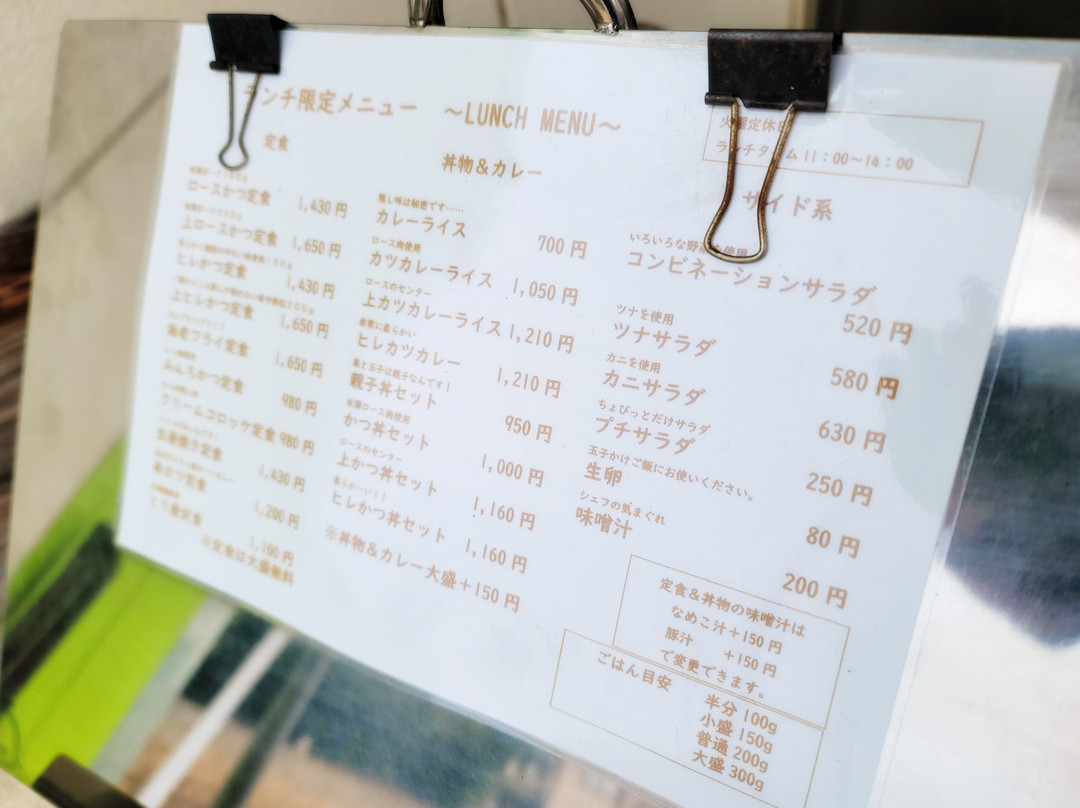 ランチ限定メニュー ～LUNCH MENU～
火曜定休日
ランチタイム 11：00～14：00
定食
ロースかつ定食 1,430 円
上ロースかつ定食 1,650 円
ヒレかつ定食 1,430 円
上ヒレかつ定食 1,650 円
海老フライ定食 1,650 円
みんちかつ定食 980 円
クリームコロッケ定食 980 円
生姜焼き定食 1,430 円
串かつ定食 1,200 円
定食 1,100 円
※定食は大盛無料
丼物＆カレー
隠し味は秘密です……
カレーライス 700 円
ロース肉使用
カツカレーライス 1,050 円
ロースのセンター
上カツカレーライス 1,210 円
非常に柔らかい
ヒレカツカレー 1,210 円
鳥と玉子は親子なんです！
親子丼セット 950 円
ロース肉使用
かつ丼セット 1,000 円
ロースのセンター
上かつ丼セット 1,160 円
柔らか～い！！
ヒレかつ丼セット 1,160 円
※丼物＆カレー大盛＋150 円
サイド系
いろいろな野菜を使用
コンビネーションサラダ 520 円
ツナを使用
ツナサラダ 580 円
カニを使用
カニサラダ 630 円
ちょぴっとだけサラダ
プチサラダ 250 円
玉子かけご飯にお使いください。
生卵 80 円
シェフの気まぐれ
味噌汁 200 円
定食＆丼物の味噌汁は
なめこ汁＋150 円
豚汁 ＋150 円
で変更できます。
ごはん目安
半分 100g
小盛 150g
普通 200g
大盛 300g